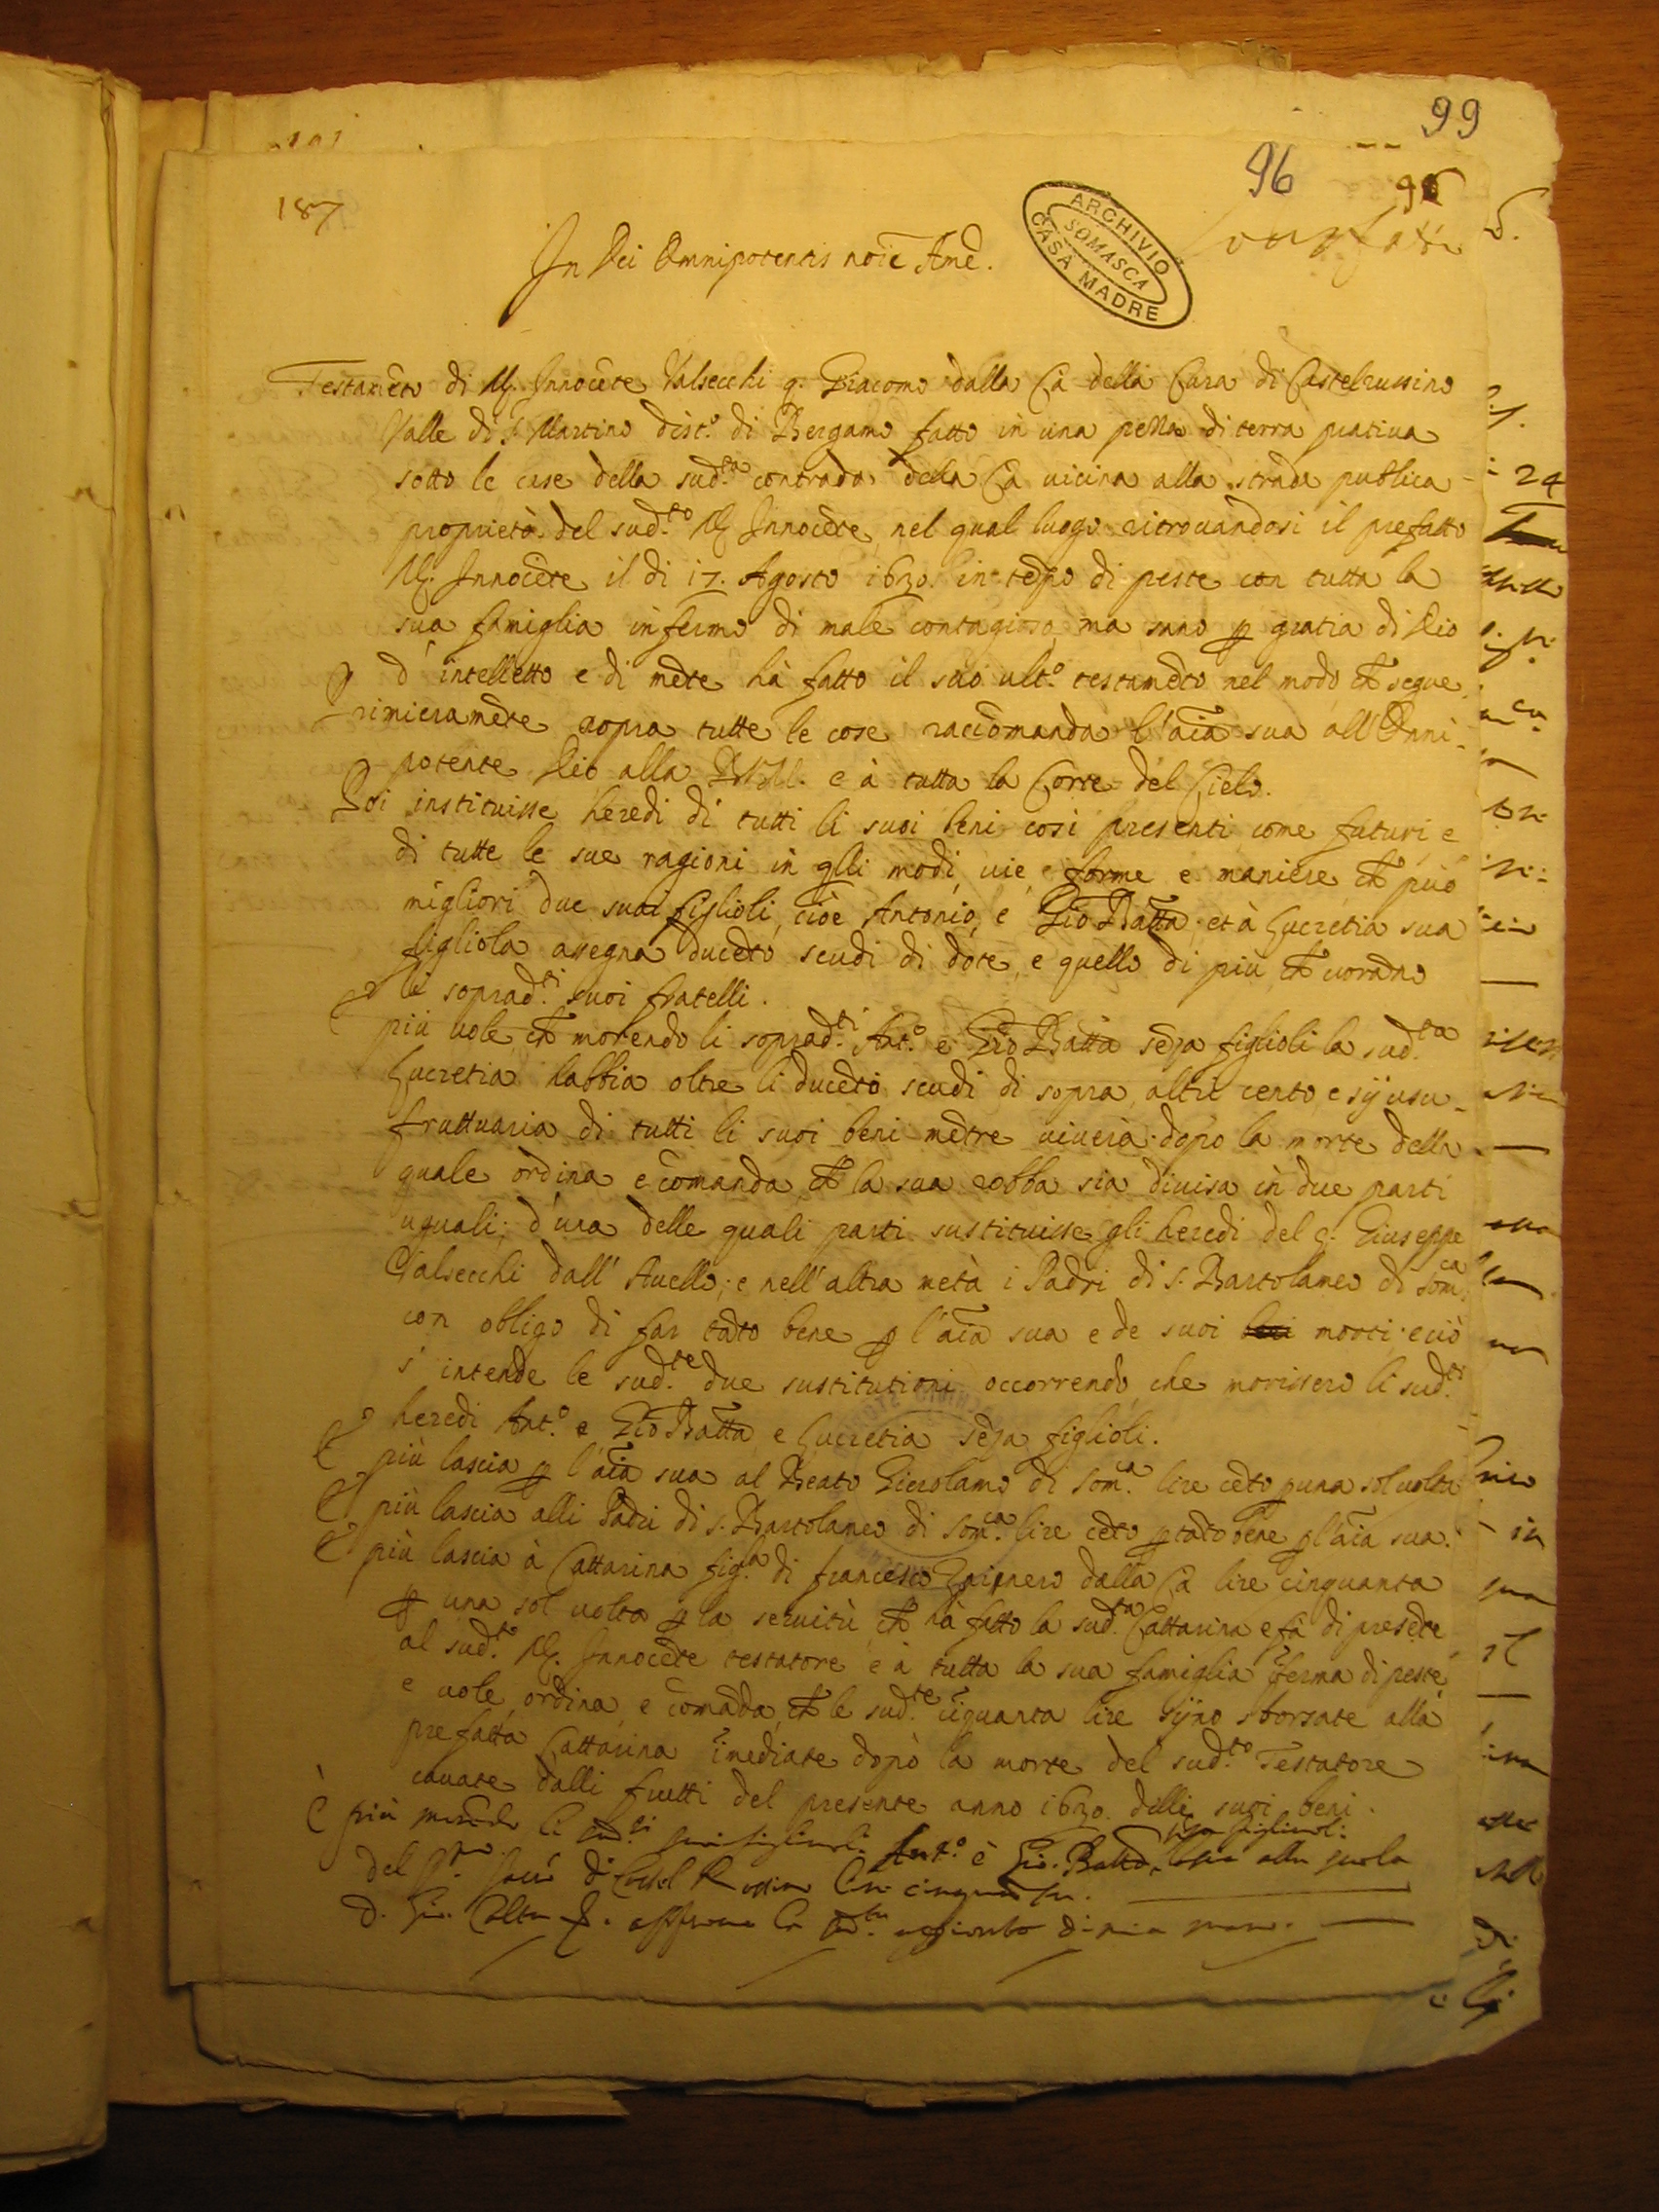 99
96
187
ARCHIVIO
SOMASCA
CASA MADRE
In Dei Omnipotentis noīe Amē.
Testamēto di M. Innocēte Valsecchi q. Giacomo dalla Cà della Cura di Castelrussino
Valle di S. Martino dist.º di Bergamo fatto in una pezza di terra pratiua
sotto le case della sud.ta contrada della Cà uicina alla strada publica
proprietà del sud.to M. Innocēte, nel qual luogo ritrouandosi il prefatto
M. Innocēte il di 17. Agosto 1630. in tēpo di peste con tutta la
sua famiglia infermo di male contagioso, ma sano ꝑ gratia di Dio
d'intelletto e di mēte hà fatto il suo ult.º testamēto nel modo ch̄ segue.
Primieramēte sopra tutte le cose raccōmanda l'aīa sua all'Onni-
potente Dio alla B.V.M. e à tutta la Corte del Cielo.
Poi instituisse heredi di tutti li suoi beni cosi presenti come futuri e
di tutte le sue ragioni in q̄lli modi, uie, e forme e maniere ch̄ può
migliori due suoi figlioli, cioè Antonio, e Gio Batta, et à Lucretia sua
figliola assegna ducēto scudi di dote, e quello di più ch̄ uorāno
li soprad.ti suoi fratelli.
E più uole, ch̄ morendo li soprad.ti Ant.º e Gio Batta sēza figlioli la sud.ta
Lucretia habbia oltre li ducēto scudi di sopra, altri cento, e sij usu-
fruttuaria di tutti li suoi beni mētre uiuerà. dopo la morte della
quale ordina e comanda, ch̄ la sua robba sia diuisa in due parti
uguali; d'una delle quali parti sustituisse gli heredi del q. Giuseppe
Valsecchi dall'Auello; e nell'altra metà i Padri di S. Bartolameo di Som.ca
con obligo di far tāto bene ꝑ l'aīa sua e de suoi morti. e ciò
s'intende le sud.te due sustitutioni, occorrendo, che morissero li sud.ti
heredi Ant.º e Gio Batta e Lucretia sēza figlioli.
E più lascia ꝑ l'aīa sua al Beato Gierolamo di Som.a lire cēto ꝑ una sol uolta
E più lascia alli Padri di S. Bartolameo di Som.ca lire cēto ꝑ tāto bene ꝑ l'aīa sua.
E più lascia à Cattarina fig.la di francesco dalla Cà lire cinquanta
ꝑ una sol uolta ꝑ la seruitù, ch̄ hà fatto la sud.ta Cattarina e fà di presēte
al sud.to M. Innocēte testatore e à tutta la sua famiglia īferma di peste,
e uole, ordina, e comāda, ch̄ le sud.te cīquanta lire sijno sborsate alla
prefatta Cattarina īmediate dopò la morte del sud.to Testatore
cauate dalli frutti del presente anno 1630. delli suoi beni.
È più li sud.ti suoi figliuoli Ant.º è Gio. Batta sēza figliuoli: alla scola
del di Castel Rossino lire cinquāta.
D. Gio. la sud.ta aggionta di mia mano.